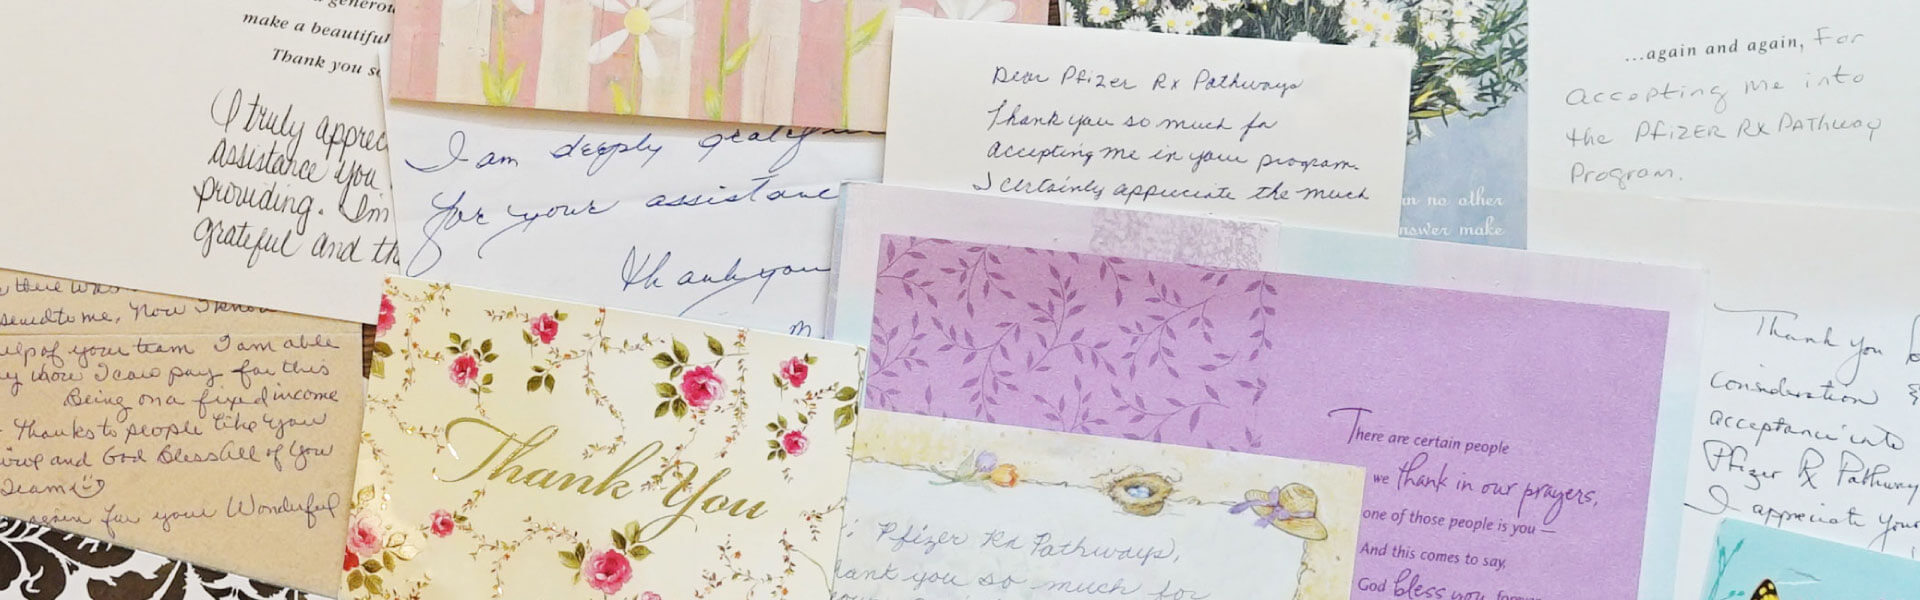 a generou
make a beautiful
Thank you s
I truly apprec
assistance you
providing. I'm
grateful and th
I am deeply
for your assistance
thank you
Dear Pfizer Rx Pathways
Thank you so much for
accepting me in your program.
I certainly appreciate the much
in no other
nswer make
...again and again, For
accepting me into
the PFIZER RX PATHWAY
Program.
there was
me. Now I know
help of your team I am able
I can pay for this
Being on a fixed income
Thanks to people like you
and God Bless All of You
Team
again for your Wonderful
Thank You
There are certain people
we thank in our prayers,
one of those people is you —
And this comes to say,
God bless you, forever
Pfizer Rx Pathways,
hank you so much for
Thank You
Consideration &
acceptance into
Pfizer Rx Pathway
I appreciate your